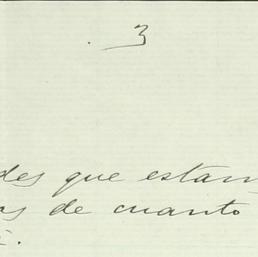 3
des que estan
os de cuanto